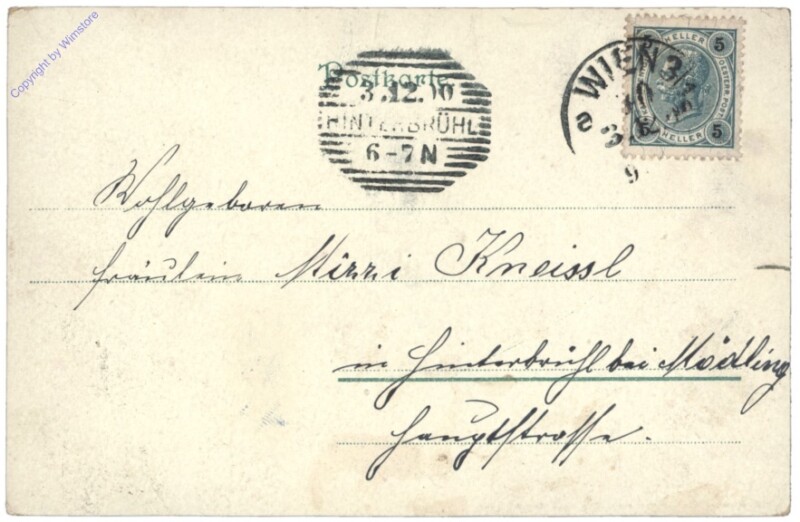 Copyright by Wimstore
Postkarte.
3.12.00
HINTERBRÜHL
6-7N
WIEN 3/
HELLER
5 5
5 5
HELLER
Wohlgeboren
Fräulein Mizzi Kneissl
in Hinterbrühl bei Mödling
Hauptstrasse.